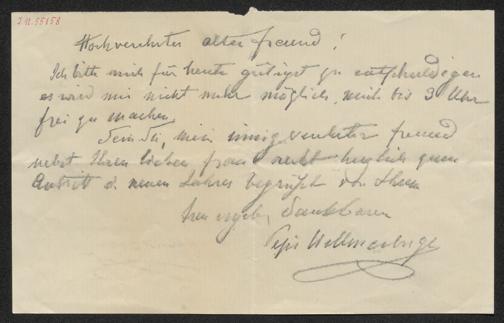 I.N. 55158
Hochverehrter alter Freund!
Ich bitte mich für heute gütigst zu entschuldigen
es wird mir nicht mehr möglich, mich bis 3 Uhr
frei zu machen
Sein Sie, mein innigverehrter Freund
nebst Ihrer lieben Frau recht herzlich zum
Antritt d. neuen Jahres begrüßt von Ihrem
treu ergeb. dankbaren